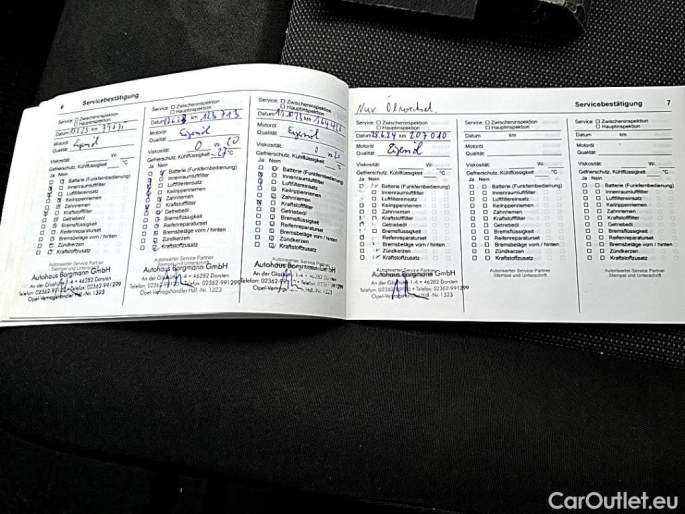 6 Servicebestätigung
Service: Zwischeninspektion
Hauptinspektion
Datum km
Motoröl
Qualität:
Viskosität: W-
Gefrierschutz, Kühlflüssigkeit °C
Ja Nein
Batterie (Funkfernbedienung)
Innenraumluftfilter
Luftfiltereinsatz
Keilrippenriemen
Zahnriemen
Kraftstofffilter
Getriebeöl
Bremsflüssigkeit
Reifenreparaturset
Bremsbeläge vorn / hinten
Zündkerzen
Kraftstoffzusatz
Autorisierter Service Partner
Stempel und Unterschrift
Autohaus Borgmann GmbH
An der Glashütte 1-4 • 46282 Dorsten
Service: Zwischeninspektion
Hauptinspektion
Datum km 123 713
Motoröl
Qualität:
Viskosität: 0 W- 20
Gefrierschutz, Kühlflüssigkeit °C
Ja Nein
Batterie (Funkfernbedienung)
Innenraumluftfilter
Luftfiltereinsatz
Keilrippenriemen
Zahnriemen
Kraftstofffilter
Getriebeöl
Bremsflüssigkeit
Reifenreparaturset
Bremsbeläge vorn / hinten
Zündkerzen
Kraftstoffzusatz
Autohaus Borgmann GmbH
46282 Dorsten
Service: Zwischeninspektion
Hauptinspektion
Datum km
Motoröl
Qualität:
Viskosität: 0 W- 20
Gefrierschutz, Kühlflüssigkeit °C
Ja Nein
Batterie (Funkfernbedienung)
Innenraumluftfilter
Luftfiltereinsatz
Keilrippenriemen
Zahnriemen
Kraftstofffilter
Getriebeöl
Bremsflüssigkeit
Reifenreparaturset
Bremsbeläge vorn / hinten
Zündkerzen
Kraftstoffzusatz
Autohaus Borgmann GmbH
46282 Dorsten
Nur Ölwechsel
Servicebestätigung 7
Service: Zwischeninspektion
Hauptinspektion
Datum km 207010
Motoröl
Qualität:
Viskosität: W-
Gefrierschutz, Kühlflüssigkeit °C
Ja Nein
Batterie (Funkfernbedienung)
Innenraumluftfilter
Luftfiltereinsatz
Keilrippenriemen
Zahnriemen
Kraftstofffilter
Getriebeöl
Bremsflüssigkeit
Reifenreparaturset
Bremsbeläge vorn / hinten
Zündkerzen
Kraftstoffzusatz
Autohaus Borgmann GmbH
46282 Dorsten
Service: Zwischeninspektion
Hauptinspektion
Datum km
Motoröl
Qualität:
Viskosität: W-
Gefrierschutz, Kühlflüssigkeit °C
Ja Nein
Batterie (Funkfernbedienung)
Innenraumluftfilter
Luftfiltereinsatz
Keilrippenriemen
Zahnriemen
Kraftstofffilter
Getriebeöl
Bremsflüssigkeit
Reifenreparaturset
Bremsbeläge vorn / hinten
Zündkerzen
Kraftstoffzusatz
Autorisierter Service Partner
Stempel und Unterschrift
Service: Zwischeninspektion
Hauptinspektion
Datum km
Motoröl
Qualität:
Viskosität: W-
Gefrierschutz, Kühlflüssigkeit °C
Ja Nein
Batterie (Funkfernbedienung)
Innenraumluftfilter
Luftfiltereinsatz
Keilrippenriemen
Zahnriemen
Kraftstofffilter
Getriebeöl
Bremsflüssigkeit
Reifenreparaturset
Bremsbeläge vorn / hinten
Zündkerzen
Kraftstoffzusatz
Autorisierter Service Partner
Stempel und Unterschrift
CarOutlet.eu